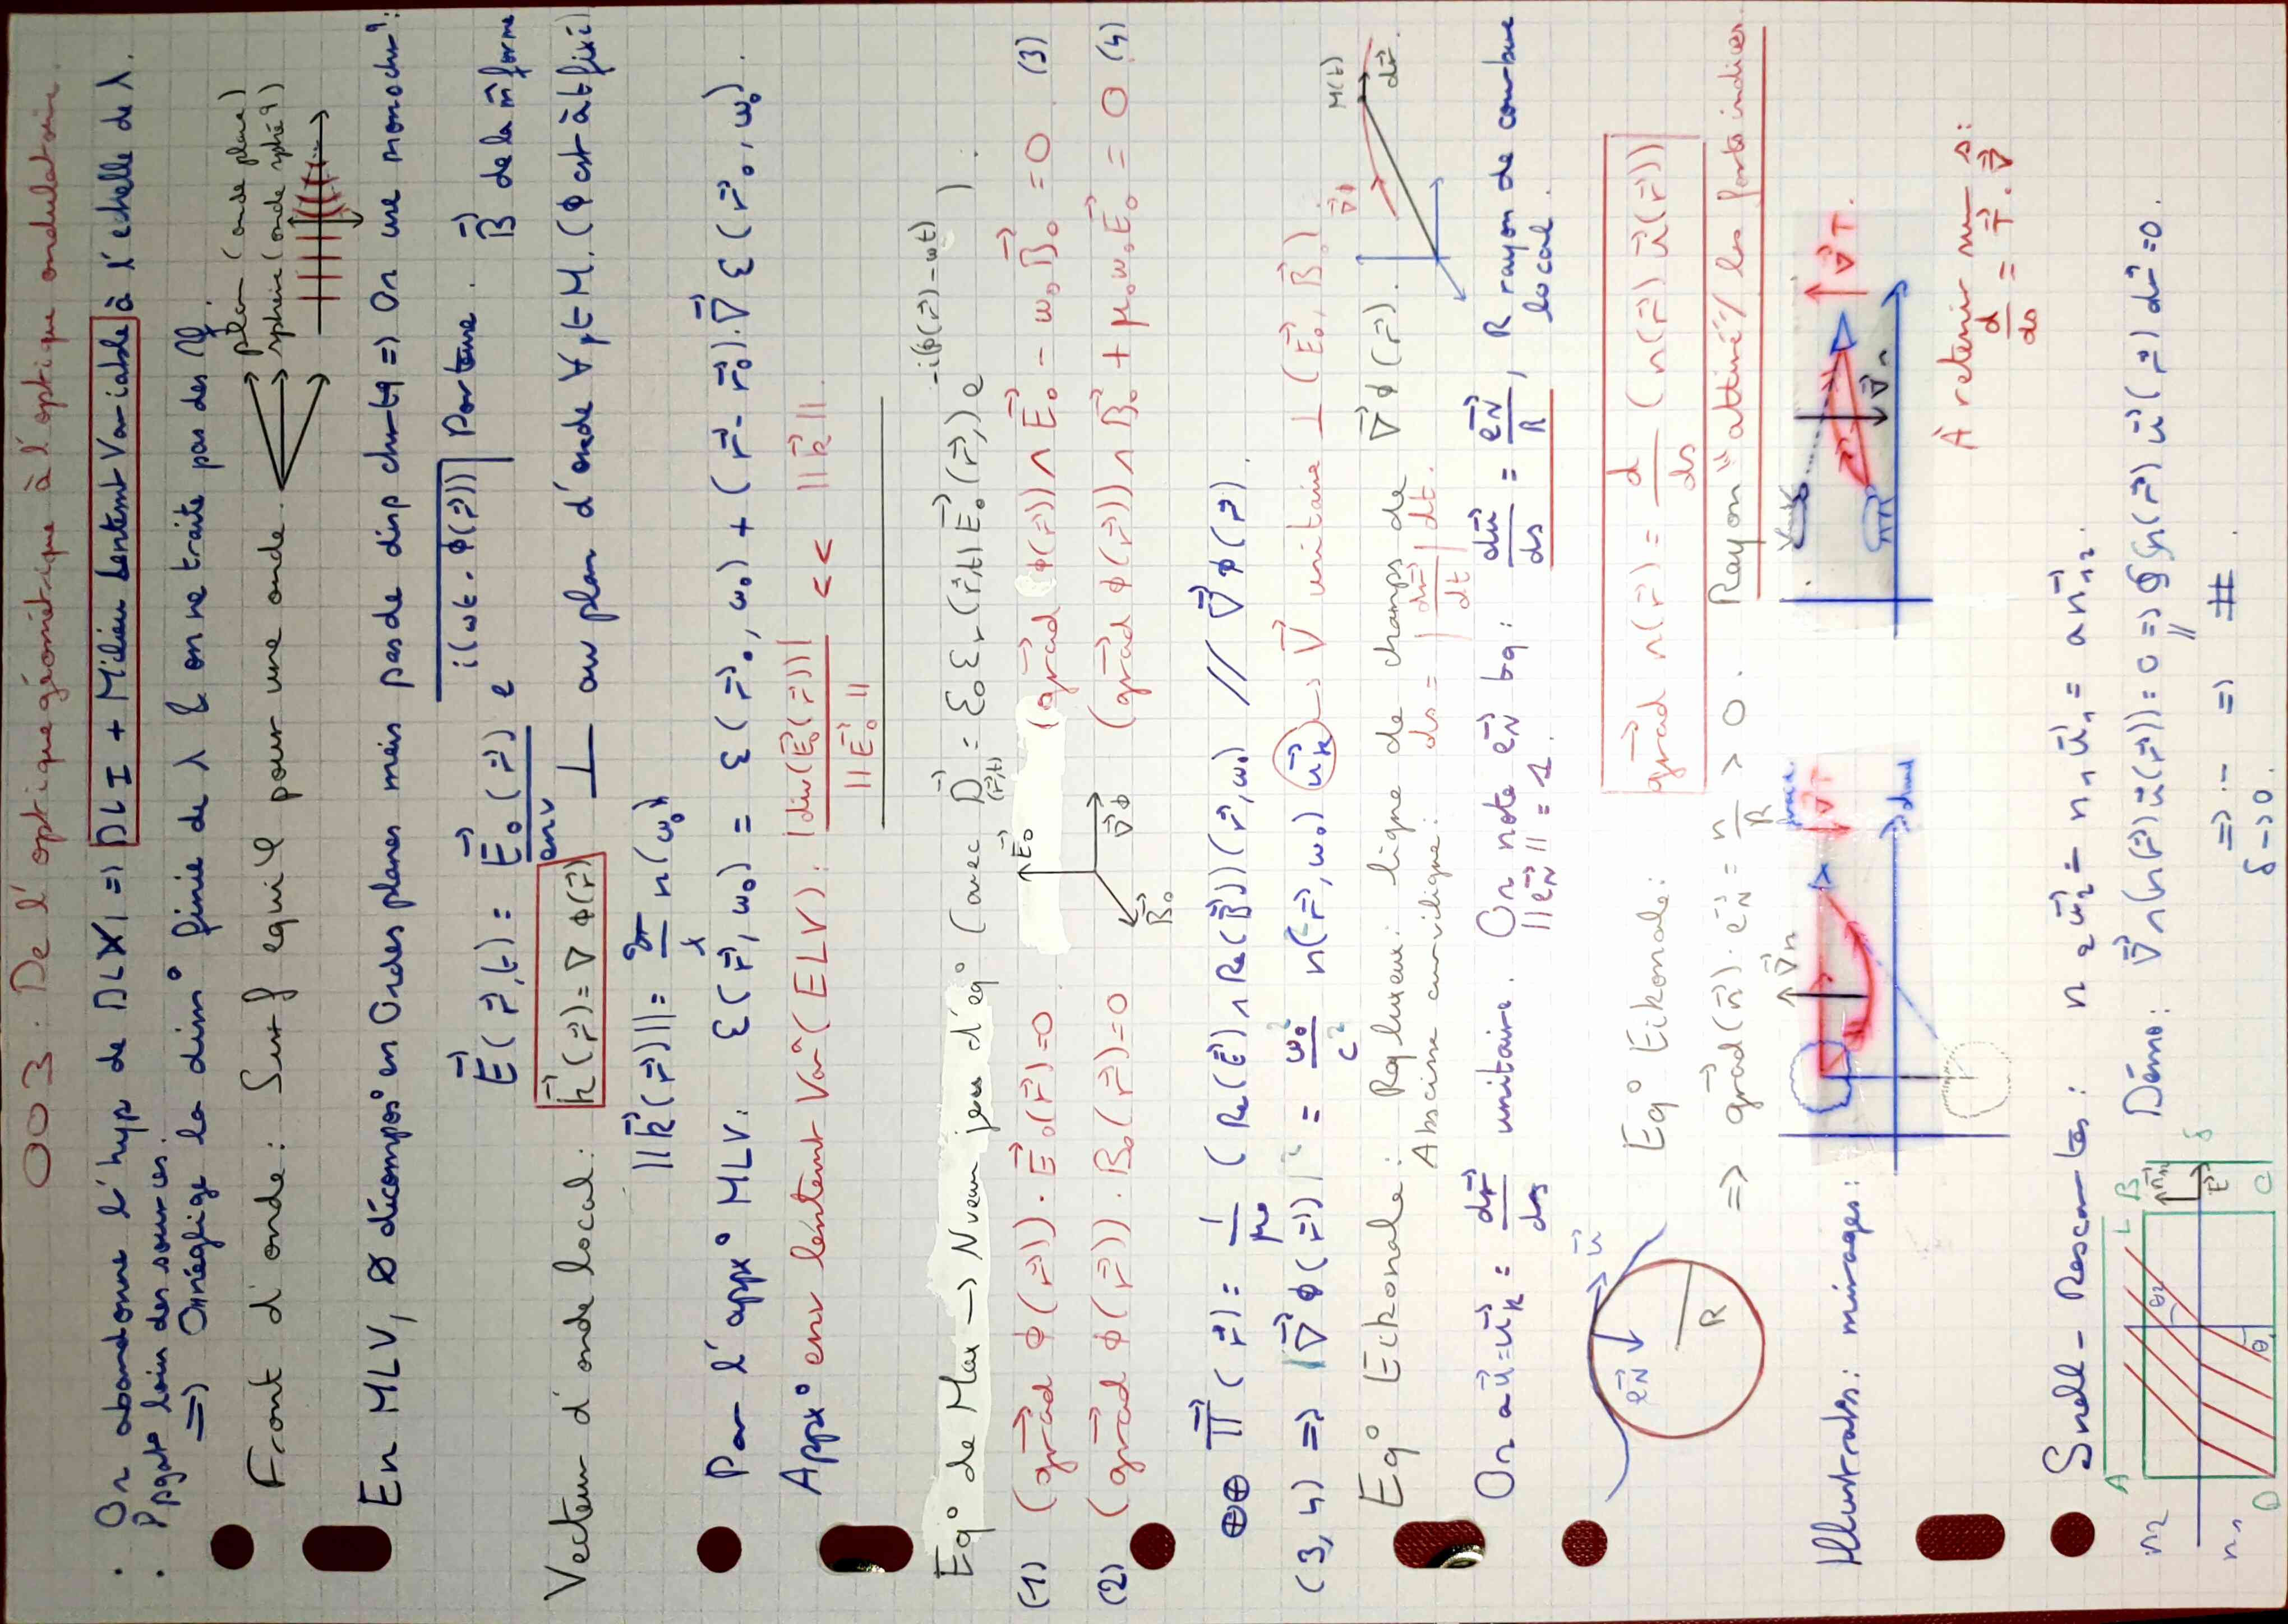 003. De l'optique géométrique à l'optique ondulatoire.
· On abandonne l'hyp de DLI => DLI + Milieu Lentemt Variable à l'échelle de λ.
· Ppgat° loin des sources.
=> On néglige la dim° finie de λ & on ne traite pas des
Front d'onde : Surf equiφ pour une onde.
plan (onde plane)
sphère (onde sphé q)
En MLV, décompos° en Ondes planes mais pas de disp chr-tq => On use monochr q :
E⃗(r⃗,t) = E⃗₀(r⃗) e^i(ωt - ϕ(r⃗)) Porteuse. B⃗ de la m̂ forme
env
Vecteur d'onde local : k⃗(r⃗) = ∇ ϕ(r⃗) ⊥ au plan d'onde ∀ pt M. (ϕ cst à t fixé)
||k⃗(r⃗)|| = 2π/λ n(ω₀)
Par l'appx° MLV. ε(r⃗, ω₀) = ε(r⃗₀, ω₀) + (r⃗ - r⃗₀).∇⃗ ε(r⃗₀, ω₀).
Appx° env lentemt Var (ELV) : |div(E⃗₀(r⃗))| / ||E⃗₀|| << ||k⃗||.
Eq° de Max → Nveau jeu d'eq° (avec D⃗(r⃗,t) = ε₀ εr(r⃗,t) E⃗₀(r⃗,) e^-i(ϕ(r⃗)-ωt) ).
(1) (gra⃗d ϕ(r⃗)) . E⃗₀(r⃗) = 0 (gra⃗d ϕ(r⃗)) ∧ E⃗₀ - ω₀ B⃗₀ = 0 (3)
(2) (gra⃗d ϕ(r⃗)) . B₀(r⃗) = 0 (gra⃗d ϕ(r⃗)) ∧ B⃗₀ + μ₀ω₀ E⃗₀ = 0 (4)
E⃗₀
∇⃗ϕ
B⃗₀
⊕⊕ Π⃗(r⃗) = 1/μ₀ (Re(E⃗) ∧ Re(B⃗))(r⃗, ω₀) // ∇⃗ϕ(r⃗).
(3, 4) => |∇⃗ϕ(r⃗)|² = ω₀²/c² n(r⃗, ω₀) u⃗k → ∇⃗ unitaire ⊥ (E⃗₀, B⃗₀).
Eq° Eikonale : Ray lumeux : ligne de champs de ∇⃗ϕ(r⃗).
Abscisse curviligne : ds = |dr⃗/dt| dt.
M(t)
dr⃗
On a u⃗ = u⃗k = dr⃗/ds unitaire. On note e⃗N tq : du⃗/ds = e⃗N/R, R rayon de courbure local.
||e⃗N|| = 1.
e⃗N
u⃗
R
Eq° Eikonale : gra⃗d n(r⃗) = d/ds (n(r⃗) u⃗(r⃗))
=> gra⃗d(n⃗) . e⃗N = n/R > 0. Rayon "attiré" / les forts indices.
Illustrat° : mirages :
∇⃗n
∇⃗T
∇⃗n
∇⃗T.
À retenir sur s :
d/ds = T⃗ . ∇⃗
Snell-Descartes : n₂ u⃗₂ - n₁ u⃗₁ = a n⃗₁₂.
Démo : ∇⃗ ∧ (n(r⃗) u⃗(r⃗)) = 0 => ∮ n(r⃗) u⃗(r⃗) dr⃗ = 0.
=> .- => #.
δ→0.
n₂
n₁
A
B
C
D
L
δ
θ₂
θ₁
n⃗₁₂
t⃗